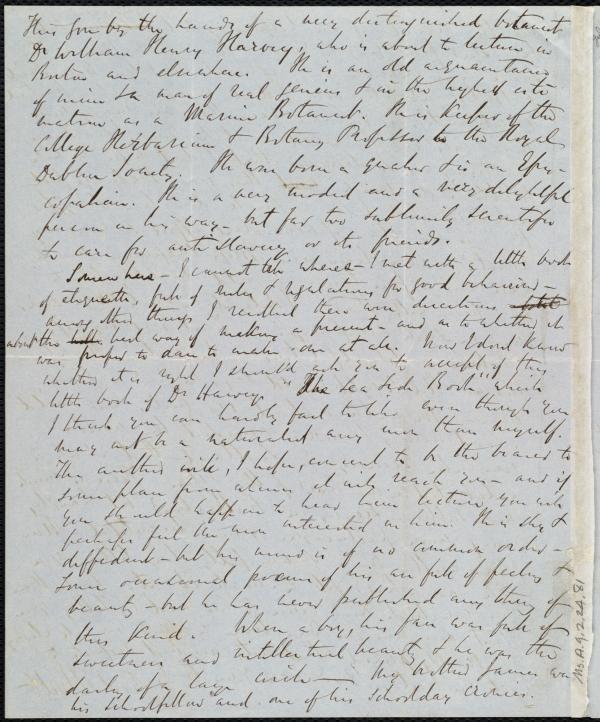 This goes by the hands of a very distinguished botanist
Dr William Henry Harvey, who is about to lecture in
Boston and elsewhere. He is an old acquaintance
of mine & a man of real genius & in the highest esti-
mation as a Marine Botanist. He is Keeper of the
College Herbarium & Botany Professor to the Royal
Dublin Society. He was born a quaker & is an Epis-
copalian. He is a very modest and a very delightful
person in his way - but far too sublimely scientific
to care for anti Slavery or its friends.
Somewhere - I cannot tell where - I met with a little book
of etiquette, full of rules & regulations for good behaviour -
among other things I recollect there were directions
about the best way of making a present - and as to whether it
was proper to dare to make one at all. Now I dont know
whether it is right I should ask you to accept of this
little book of Dr Harveys "The Sea Side Book" which
I think you can hardly fail to like even though you
may not be a naturalist any more than myself.
The author will, I hope, consent to be the bearer to
some place from whence it will reach you - and if
you should happen to hear him lecture you will
perhaps feel the more interested in him. He is shy &
diffident - but his mind is of no common order -
Some occasional poems of his are full of feeling &
beauty - but he has never published any thing of
this kind. When a boy, his face was full of
sweetness and intellectual beauty & he was the
darling of a large circle - My brother James was
his schoolfellow and one of his schoolday cronies.
Ms.A.9.2.24.81